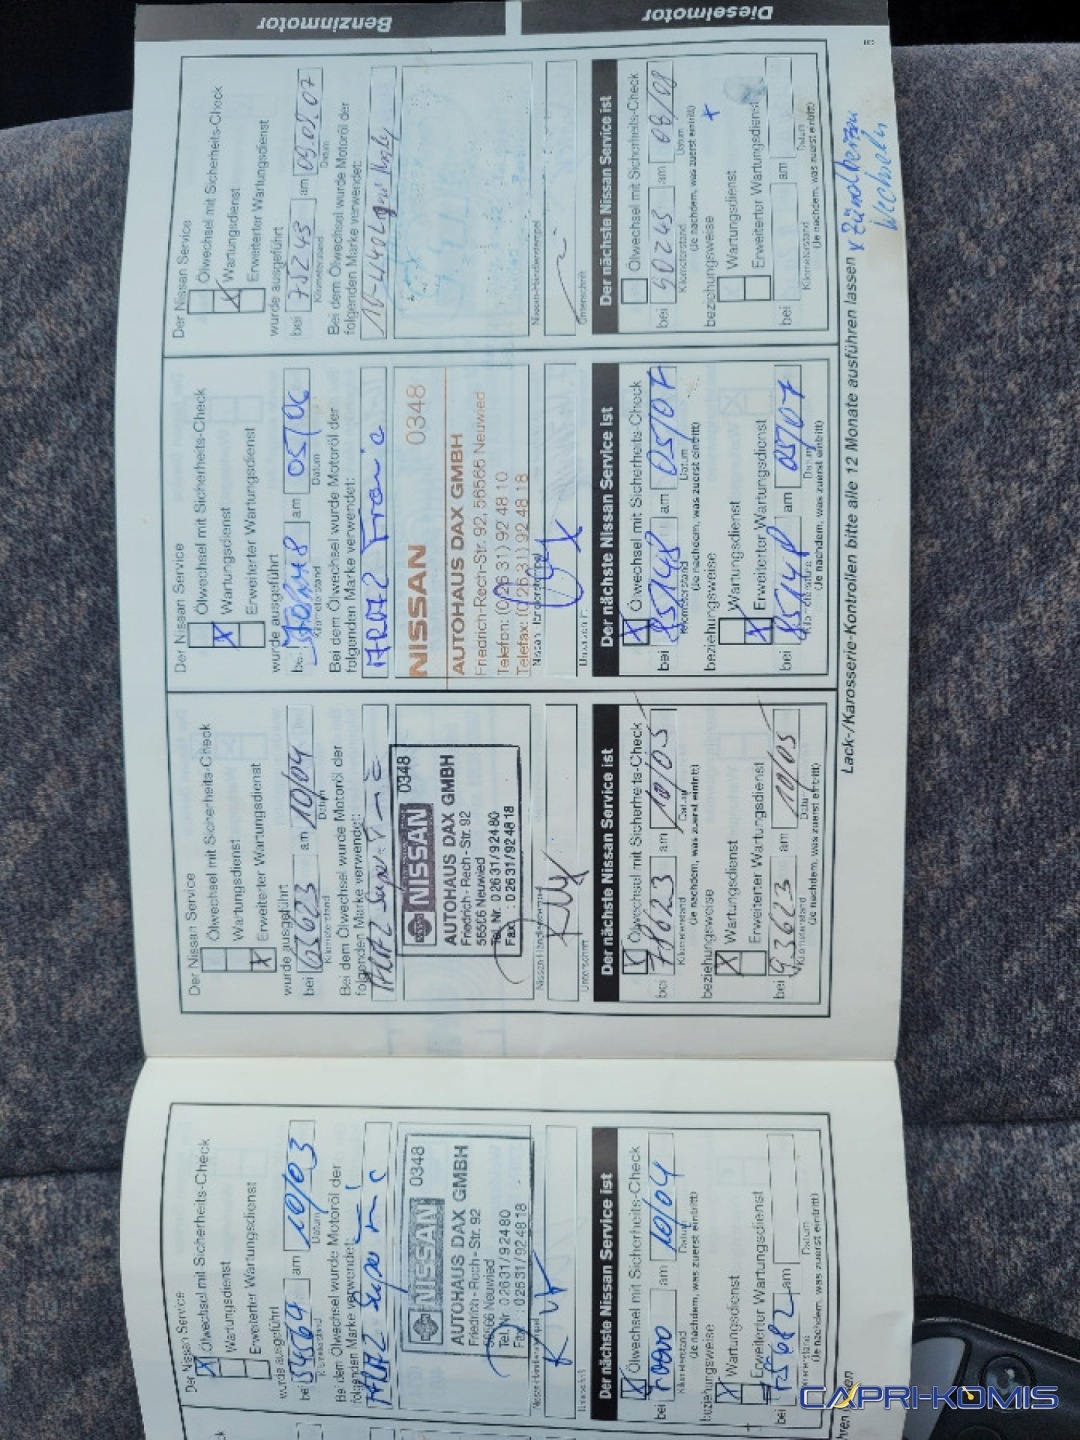 Benzinmotor
Dieselmotor
Der Nissan Service
Ölwechsel mit Sicherheits-Check
Wartungsdienst
Erweiterter Wartungsdienst
wurde ausgeführt
bei 54564 am 10/03
Kilometerstand Datum
Bei dem Ölwechsel wurde Motoröl der
folgenden Marke verwendet:
NISSAN 0348
AUTOHAUS DAX GMBH
Friedrich-Rech-Str. 92
56566 Neuwied
Tel. Nr. 02631/92480
Fax. : 02631/924818
Nissan-Händlerstempel
Unterschrift
Der nächste Nissan Service ist
Ölwechsel mit Sicherheits-Check
bei 70000 am 10/04
Kilometerstand Datum
(Je nachdem, was zuerst eintritt)
beziehungsweise
Wartungsdienst
Erweiterter Wartungsdienst
bei am
Datum
(Je nachdem, was zuerst eintritt)
Der Nissan Service
Ölwechsel mit Sicherheits-Check
Wartungsdienst
Erweiterter Wartungsdienst
wurde ausgeführt
bei 63623 am 10/04
Kilometerstand Datum
Bei dem Ölwechsel wurde Motoröl der
folgenden Marke verwendet:
NISSAN 0348
AUTOHAUS DAX GMBH
Friedrich-Rech-Str. 92
56566 Neuwied
Tel. Nr. 02631/92480
Fax. : 02631/924818
Nissan-Händlerstempel
Unterschrift
Der nächste Nissan Service ist
Ölwechsel mit Sicherheits-Check
bei 78623 am 10/05
Kilometerstand Datum
(Je nachdem, was zuerst eintritt)
beziehungsweise
Wartungsdienst
Erweiterter Wartungsdienst
bei 93623 am 10/05
Kilometerstand Datum
(Je nachdem, was zuerst eintritt)
Der Nissan Service
Ölwechsel mit Sicherheits-Check
Wartungsdienst
Erweiterter Wartungsdienst
wurde ausgeführt
bei 70148 am 05/06
Kilometerstand Datum
Bei dem Ölwechsel wurde Motoröl der
folgenden Marke verwendet:
NISSAN 0348
AUTOHAUS DAX GMBH
Friedrich-Rech-Str. 92, 56566 Neuwied
Telefon: (0 26 31) 92 48 10
Telefax: (0 26 31) 92 48 18
Nissan-Händlerstempel
Unterschrift
Der nächste Nissan Service ist
Ölwechsel mit Sicherheits-Check
bei 85148 am 05/07
Kilometerstand Datum
(Je nachdem, was zuerst eintritt)
beziehungsweise
Wartungsdienst
Erweiterter Wartungsdienst
bei 85148 am 05/07
Kilometerstand Datum
(Je nachdem, was zuerst eintritt)
Der Nissan Service
Ölwechsel mit Sicherheits-Check
Wartungsdienst
Erweiterter Wartungsdienst
wurde ausgeführt
bei 75243 am 09.08.07
Kilometerstand Datum
Bei dem Ölwechsel wurde Motoröl der
folgenden Marke verwendet:
Nissan-Händlerstempel
Unterschrift
Der nächste Nissan Service ist
Ölwechsel mit Sicherheits-Check
bei 90243 am 08/08
Kilometerstand Datum
(Je nachdem, was zuerst eintritt)
beziehungsweise
Wartungsdienst
Erweiterter Wartungsdienst
bei am
Kilometerstand Datum
(Je nachdem, was zuerst eintritt)
Lack-/Karosserie-Kontrollen bitte alle 12 Monate ausführen lassen
x Zündkerzen
wechseln
CAPRI-KOMIS